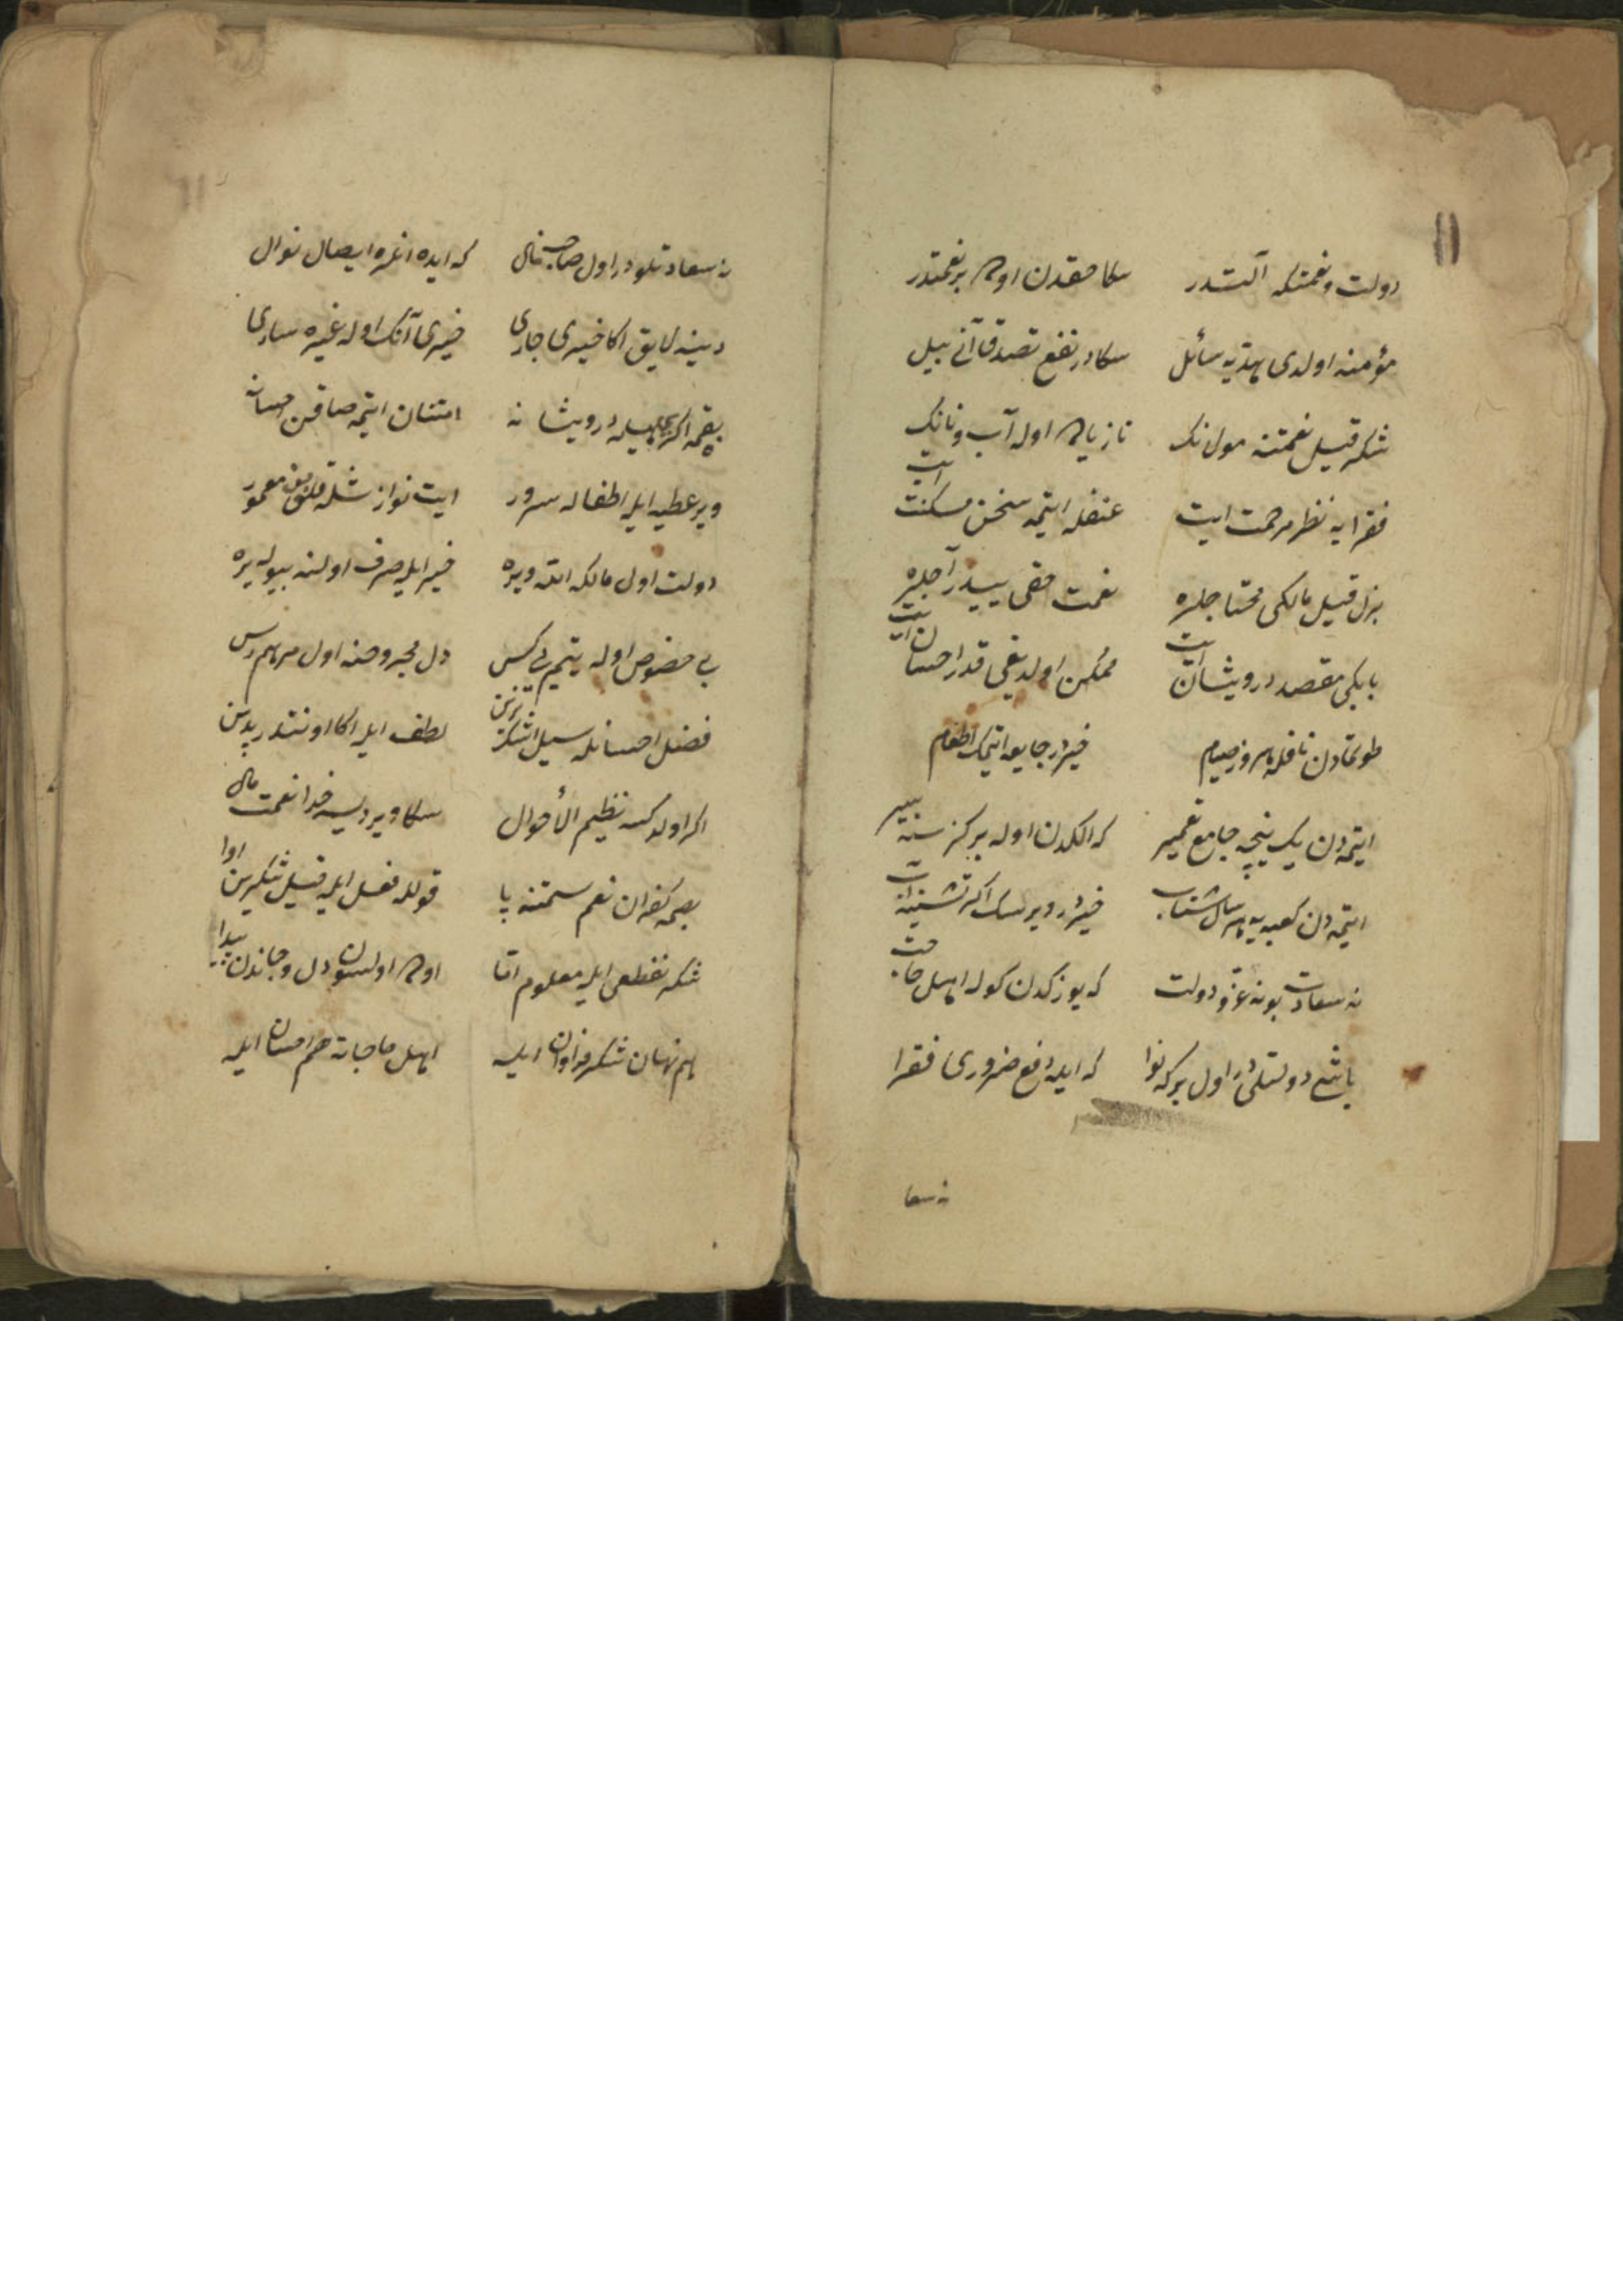 11
دولت و نعمتكه آلتدر سكا حقدن اوده بر نعمتدر
مؤمنه اولدی هدیه سائل سكادر نفع تصدق آنی بیل
شكر قیل نعمتنه مولانك تا زیاده اوله آب و نانك
فقرایه نظر مرحمت ایت عنفله ایتمه سخن مسكنت ایت
بذل قیل مالكی محتاجلره نعمت حقی ییدر آجلره
بابكی مقصد درویشان ایت ممكن اولدیغی قدر احسان ایت
طوتمادن نافله هر روز صیام خیردر جایعه ایتمك اطعام
ایتمه دن یك نیچه جامع تعمیر كه الكدن اوله بر كرسنه سیر
ایتمه دن كعبه یه هر سال شتاب خیردر ویرسك اكر تشنیه آب
نه سعادت بو نه عز و دولت كه یوزكدن كوله اهل حاجت
باشع دولتلی در اول بركه نوا كه ایله دفع ضروری فقرا
نه سعا
نه سعادتلودر اول صاحب مال كه ایده انلره ایصال نوال
دینه لایق اكا خیری جاری خیری آنك اوله غیره ساری
یقمه اكر ایله درویشانه امتنان ایتمه صاقن احسانه
ویر عطیه ایله اطفاله سرور ایت نوازشله قلوبن معمور
دولت اول مالكه الله ویره خیر ایله صرف اولنه بیوله یره
بی حضور اوله یتیم بی كس دل مجروحنه اول مرهم رس
فضل احسانله سیل اشكن لطف ایله اكا اونتدر پدرین
اكر اولدكسه نظیم الأحوال سكا ویردیسه خدا نعمت مال
بصمه كفران نعم سمتنه پا قولله فعل ایله قیل شكرین ادا
شكر نفطعی ایله معلوم اما اوده اولسون دل و جاندن پیدا
هم نهان شكر فراوان ایله اهل حاجاته هم احسان ایله